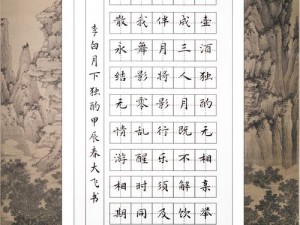 壶酒独酌无相亲举
成三人月既不解饮
伴月将影行乐须及
我舞影零乱醒时同
散永结无情游相期
李白月下独酌甲辰春大飞书